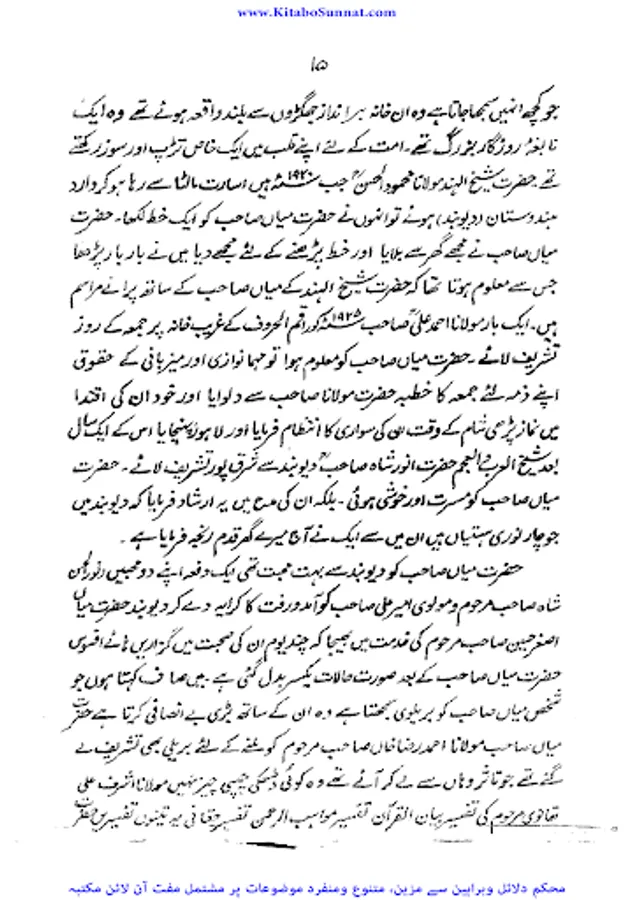 www.KitaboSunnat.com
۱۵
جو کچھ انہیں سمجھا جاتا ہے وہ ان خانہ برانداز جھگڑوں سے بلند واقعہ ہوئے تھے وہ ایک
نابغۂ روزگار بزرگ تھے۔ امت کے لئے اپنے قلب میں ایک خاص تڑپ اور سوز رکھتے
تھے۔ حضرت شیخ الہند مولانا محمود الحسنؒ جب ۱۹۲۰ء میں اسارت مالٹا سے رہا ہو کر وارد
ہندوستان (دیوبند) ہوئے تو انہوں نے حضرت میاں صاحب کو ایک خط لکھا۔ حضرت
میاں صاحب نے مجھے گھر سے بلایا اور خط پڑھنے کے لئے مجھے دیا میں نے بار بار پڑھا
جس سے معلوم ہوتا تھا کہ حضرت شیخ الہند کے میاں صاحب کے ساتھ پرانے مراسم
ہیں۔ ایک بار مولانا احمد علیؒ صاحب ۱۹۲۵ء کو راقم الحروف کے غریب خانہ پر جمعہ کے روز
تشریف لائے۔ حضرت میاں صاحب کو معلوم ہوا تو مہمانوازی اور میزبانی کے حقوق
اپنے ذمہ لئے جمعہ کا خطبہ حضرت مولانا صاحب سے دلوایا اور خود ان کی اقتدا
میں نماز پڑھی شام کے وقت ان کی سواری کا انتظام فرمایا اور لاہور پہنچایا اس کے ایک سال
بعد شیخ العرب والعجم حضرت انور شاہ صاحبؒ دیوبند سے شرق پور تشریف لائے۔ حضرت
میاں صاحب کو مسرت اور خوشی ہوئی۔ بلکہ ان کی مدح میں یہ ارشاد فرمایا کہ دیوبند میں
جو چار نوری ہستیاں ہیں ان میں سے ایک نے آج میرے گھر قدم رنجہ فرمایا ہے۔
حضرت میاں صاحب کو دیوبند سے بہت محبت تھی ایک دفعہ اپنے دو محبیں (نور الحسن
شاہ صاحب مرحوم و مولوی امیر علی صاحب کو آمدورفت کا کرایہ دے کر دیوبند حضرت میاں
اصغر حسین صاحب مرحوم کی خدمت میں بھیجا کہ چند یوم ان کی صحبت میں گزاریں ہائے افسوس
حضرت میاں صاحب کے بعد صورت حالات یکسر بدل گئی ہے۔ میں صاف کہتا ہوں جو
شخص میاں صاحب کو بریلوی سمجھتا ہے وہ ان کے ساتھ بڑی بے انصافی کرتا ہے حضرت
میاں صاحب مولانا احمد رضا خاں صاحب مرحوم کو ملنے کے لئے بریلی بھی تشریف لے
گئے تھے جو تاثر وہاں سے لے کر آئے تھے وہ کوئی ڈھکی چھپی چیز نہیں مولانا اشرف علی
تھانوی مرحوم کی تفسیر بیان القرآن تفسیر مواہب الرحمن تفسیر حقانی یہ تینوں تفسیریں حضرت
محکم دلائل وبراہین سے مزین، متنوع ومنفرد موضوعات پر مشتمل مفت آن لائن مکتبہ